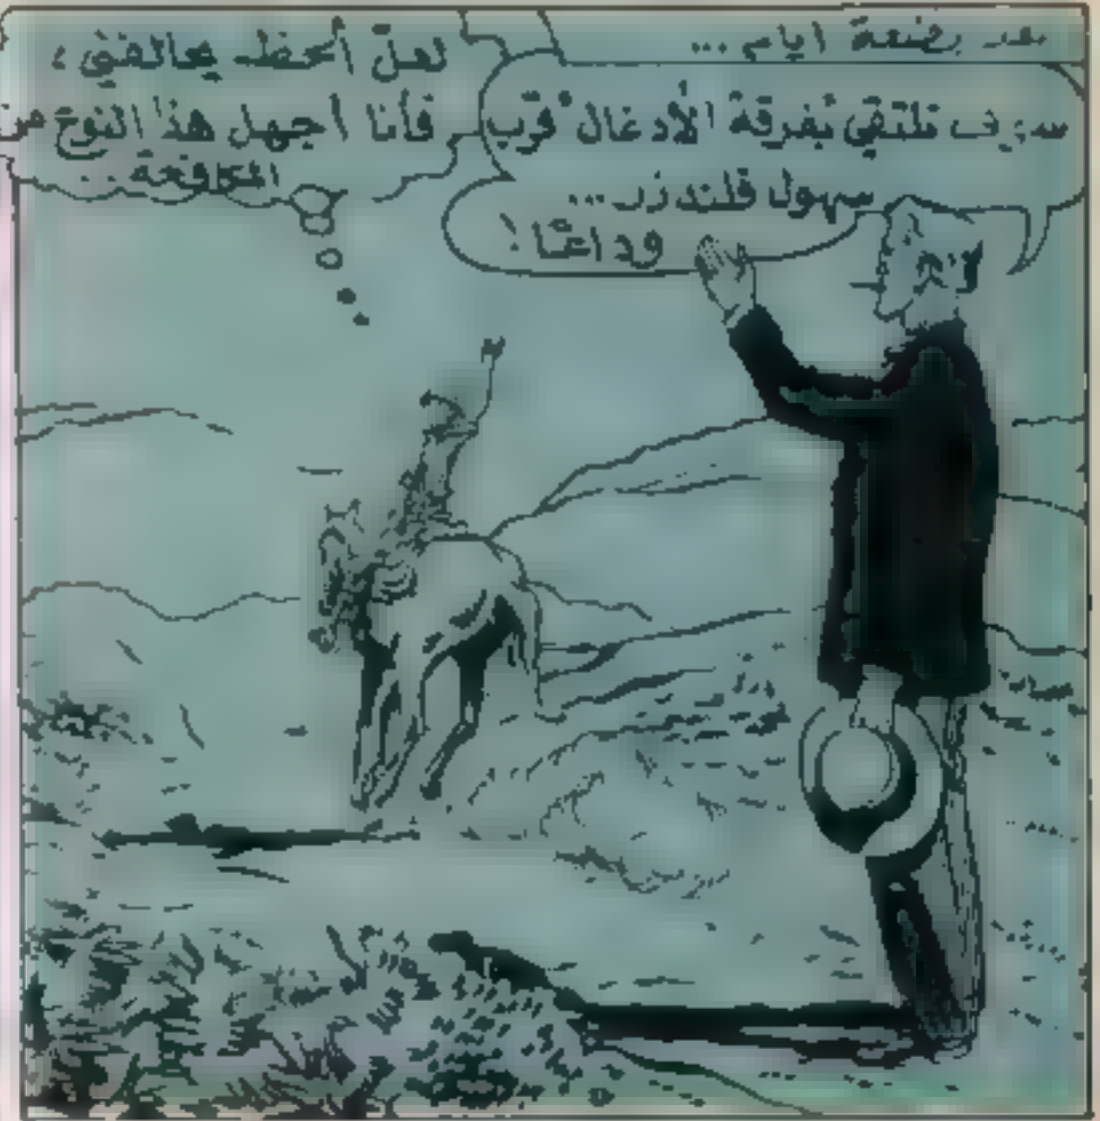 بعد بضعة أيام ...
سوف تلتقي بفرقة الأدغال قرب
سهول قلندزر ...
وداعًا !
لعلّ الحظ يحالفني ،
فأنا أجهل هذا النوع من
المكافحة ..